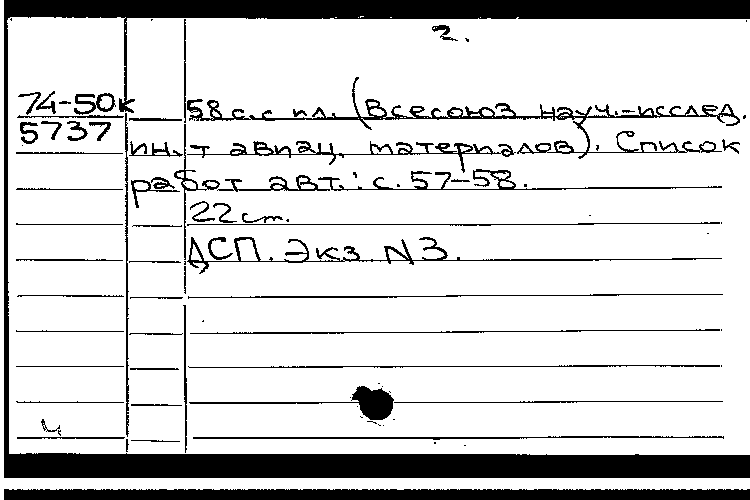 2.
74-50к 58 с. с ил. (Всесоюз. науч.-исслед.
5737 ин-т авиац. материалов). Список
работ авт.: с. 57-58.
22 см.
ДСП. Экз. N3.
ч